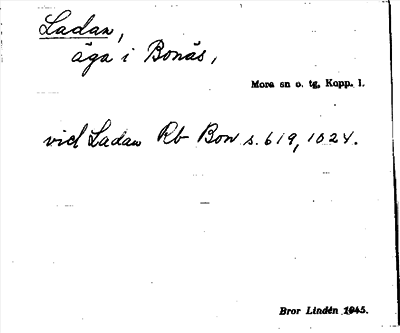 Ladan,
äga i Bonäs,
Mora sn o. tg, Kopp. l.
vid Ladan Rb Bon s. 619, 1024.
Bror Lindén 1945.